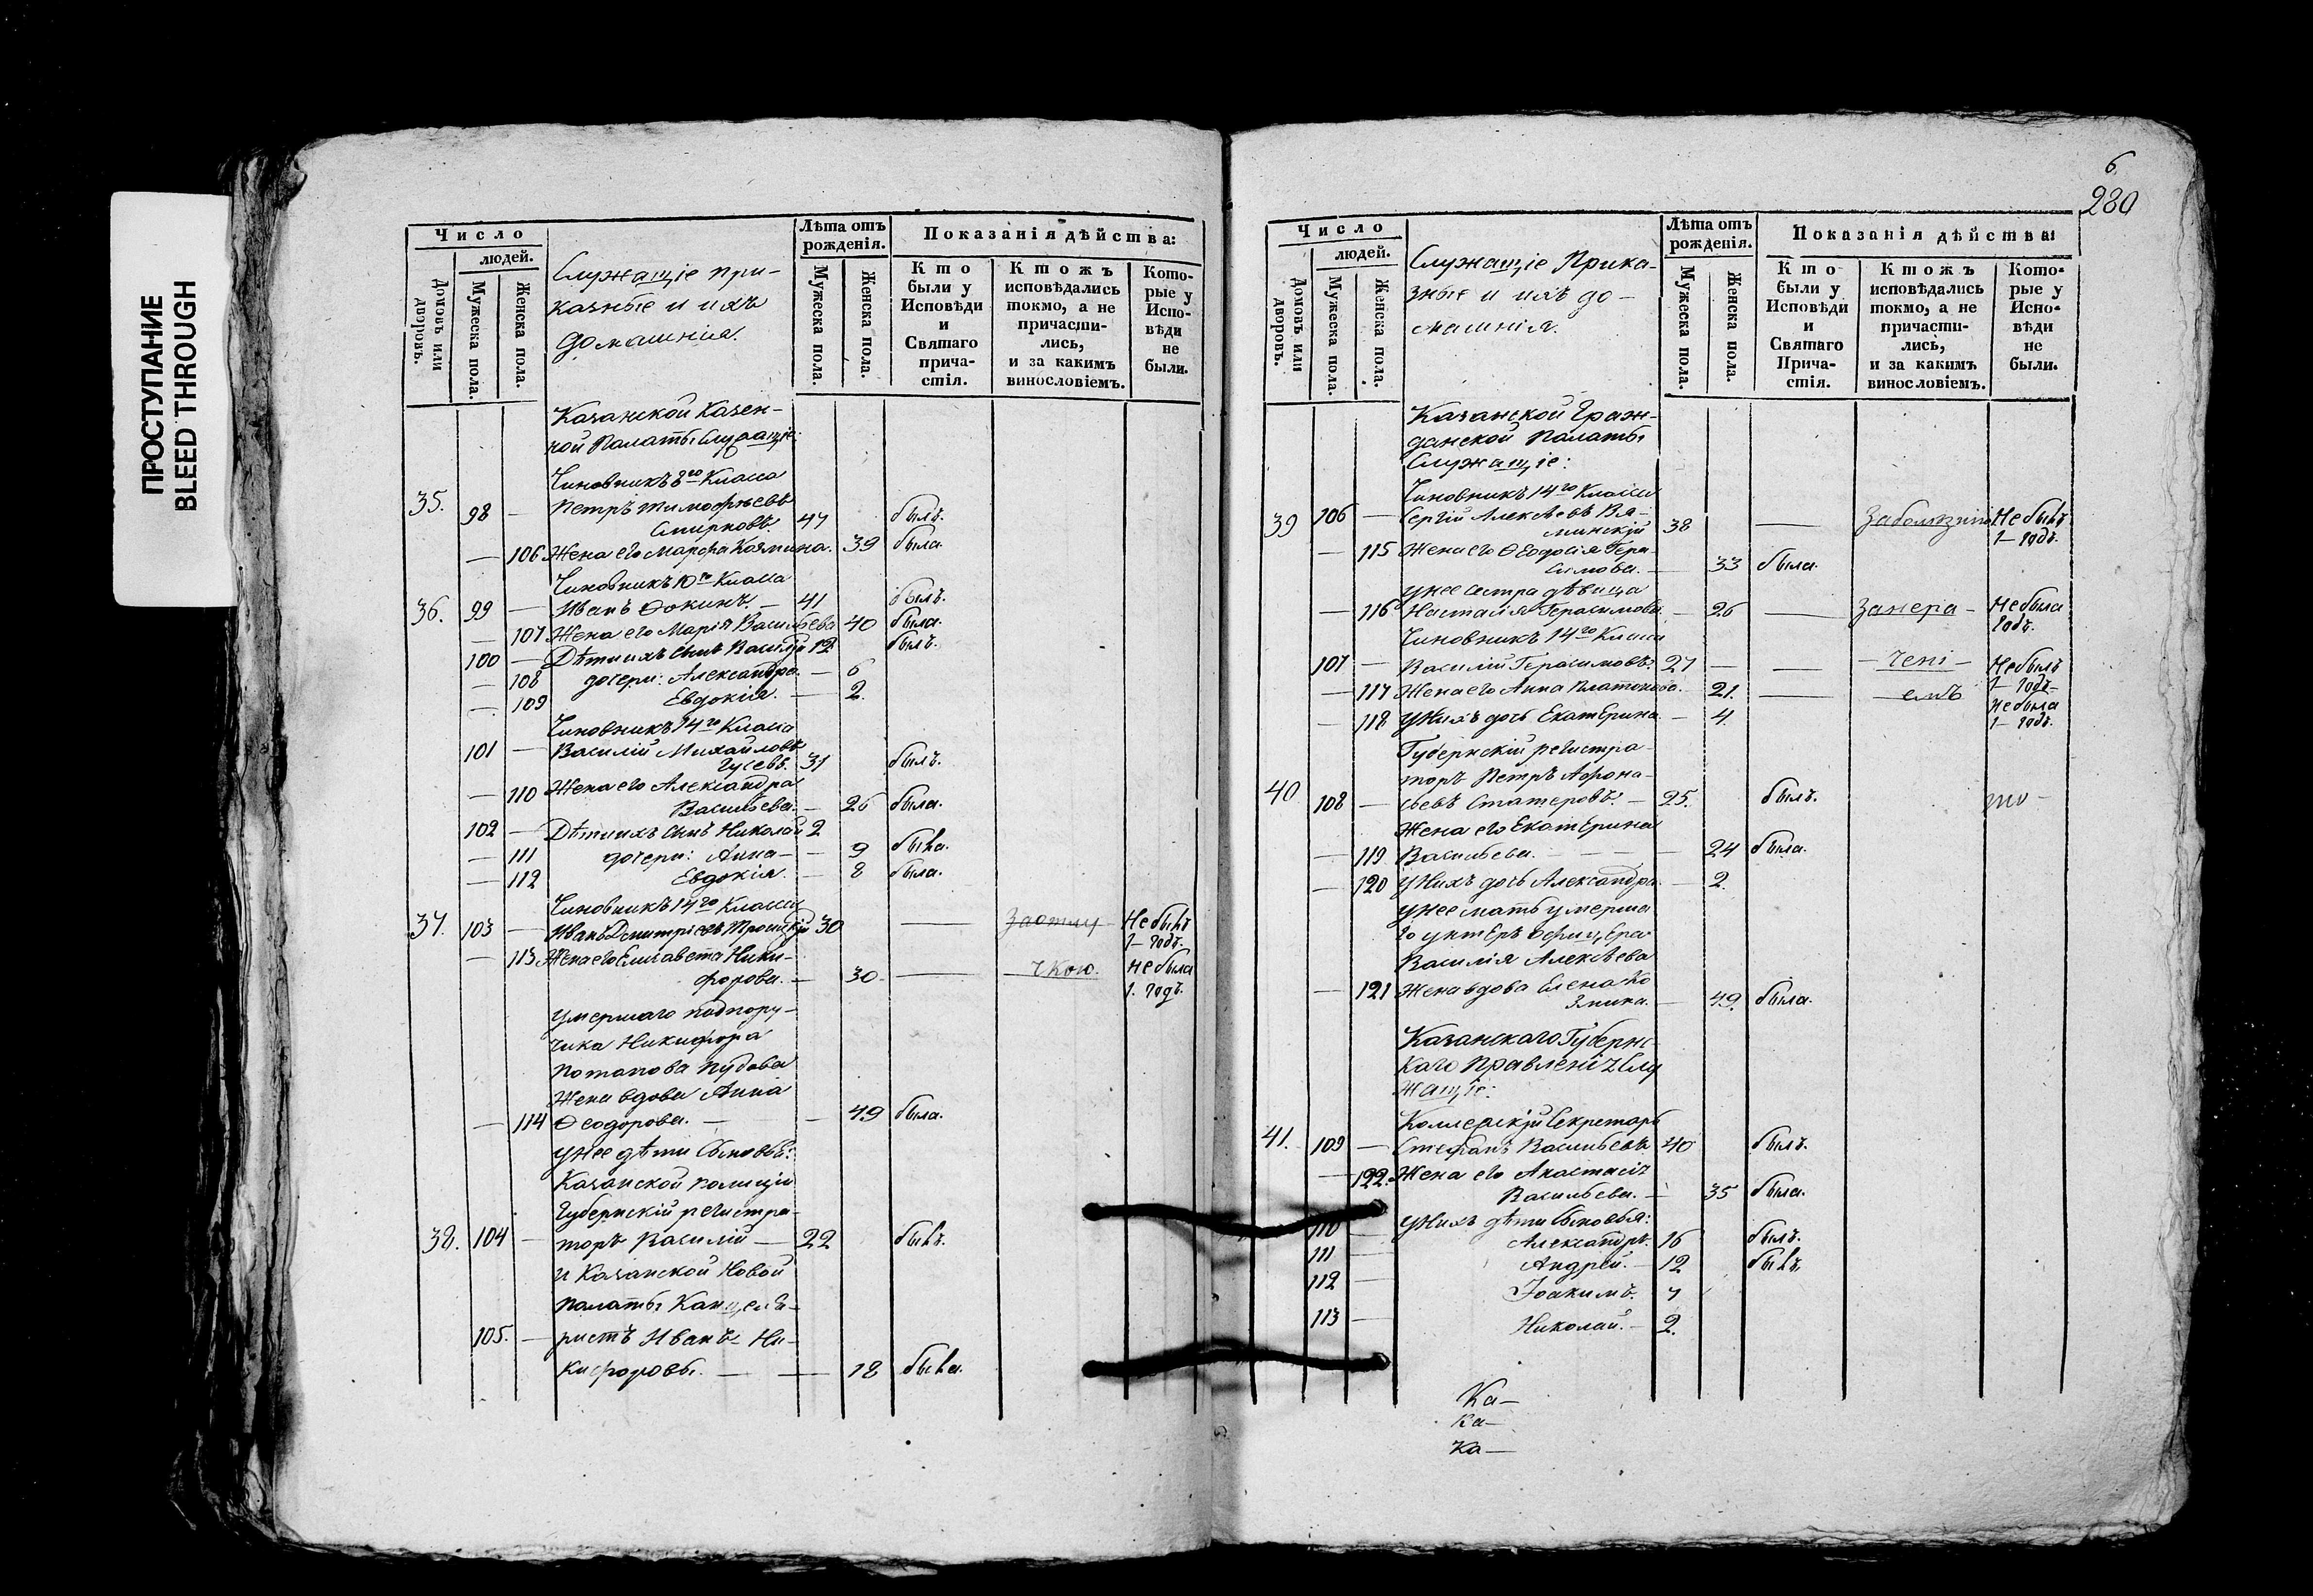 ПРОСТУПАНИЕ
BLEED THROUGH
Число
людей.
Домовъ или дворовъ.
Мужеска пола.
Женска пола.
Служащіе при-
казные и ихъ
домашнія.
Лѣта отъ
рожденія.
Мужеска пола.
Женска пола.
Показанія дѣйства:
Кто
были у
Исповѣди
и
Святаго
прича-
стія.
Ктожъ
исповѣдались
токмо, а не
причасти-
лись,
и за какимъ
винословіемъ.
Кото-
рые у
Испо-
вѣди
не
были.
Казанской Казен-
ной Палаты Служащіе:
Чиновникъ 8го Класса
35. 98 — Петръ Тимофѣевъ
Смирновъ. 47 былъ.
— 106 Жена его Марфа Козмина. 39 была.
Чиновникъ 10го Класса
36. 99 — Иванъ Ѳокинъ. — 41 былъ.
— 107 Жена его Марія Васильева 40 была.
100 — Дѣти ихъ сынъ Василій 12 былъ.
— 108 дочери: Александра. — 6
— 109 Евдокія. — 2.
Чиновникъ 14го Класса
101 — Василій Михайловъ
Гусевъ. 31 былъ.
— 110 Жена его Александра
Васильева. — 26 была.
102 — Дѣти ихъ сынъ Николай 2
— 111 дочери: Анна — — 9 была.
— 112 Евдокія. — 8 была.
Чиновникъ 14го Класса
37. 103 — Иванъ Дмитріевъ Троицкій 30 — за отлу- Не былъ
1- годъ.
— 113 Жена его Елисавета Ники-
форова. — 30 — чкою. не была
1. годъ.
умершаго подпору-
чика Никифора
Потапова Пудова
Жена вдова Анна
— 114 Ѳеодорова. — — 49 была.
у нее дѣти сыновья:
Казанской полиціи
Губернскій регистра-
38. 104 — торъ Василій — 22 былъ.
и Казанской Новой
палаты Канцеля-
105. — ристъ Иванъ Ни-
кифоровы. — — 18 была.
6
280
Число
людей.
Домовъ или дворовъ.
Мужеска пола.
Женска пола.
Служащіе Прика-
зные и ихъ до-
машнія.
Лѣта отъ
рожденія.
Мужеска пола.
Женска пола.
Показанія дѣйства:
Кто
были у
Исповѣди
и
Святаго
Прича-
стія.
Ктожъ
исповѣдались
токмо, а не
причасти-
лись,
и за какимъ
винословіемъ.
Кото-
рые у
Испо-
вѣди
не
были.
Казанской Граж-
данской Палаты
Служащіе:
Чиновникъ 14го Класса
39 106 — Сергій Алексѣевъ Вя-
минскій 38 — Не былъ
1- годъ.
— 115 Жена его Ѳеодосія Гера-
симова. — 33 была.
у нее сестра дѣвица
— 116 Настасія Герасимова. — 26 — За нера- Не была
1 годъ.
Чиновникъ 14го Класса
107 — Василій Герасимовъ. 27 — — — чені — Не былъ
1- годъ.
— 117 Жена его Анна Платонова. 21. — — емъ Не была
1- годъ.
— 118 У Нихъ дочь Екатерина — 4.
Губернскій регистра-
торъ Петръ Афона-
40 108 — сьевъ Статеровъ. — 25. былъ.
Жена его Екатерина
— 119 Васильева. — — — 24 была.
— 120 У Нихъ дочь Александра — 2.
у нее мать умерша
го унтеръ офицера
Василія Алексѣева
— 121 Жена вдова Елена Ко
змина. — 49. была.
Казанскаго Губернс-
каго Правленія Слу
жащіе:
Коллежскій Секретарь
41. 109 — Стефанъ Васильевъ 40 былъ.
— 122. Жена его Анастасія
Васильева. — 35 была.
110 — У Нихъ дѣти Сыновья:
Александръ. 16 былъ.
111 — Андрей. — 12 былъ.
112 — Іоакимъ. 7
113 — Николай. — 2.
Ка—
Ка—
Ка—